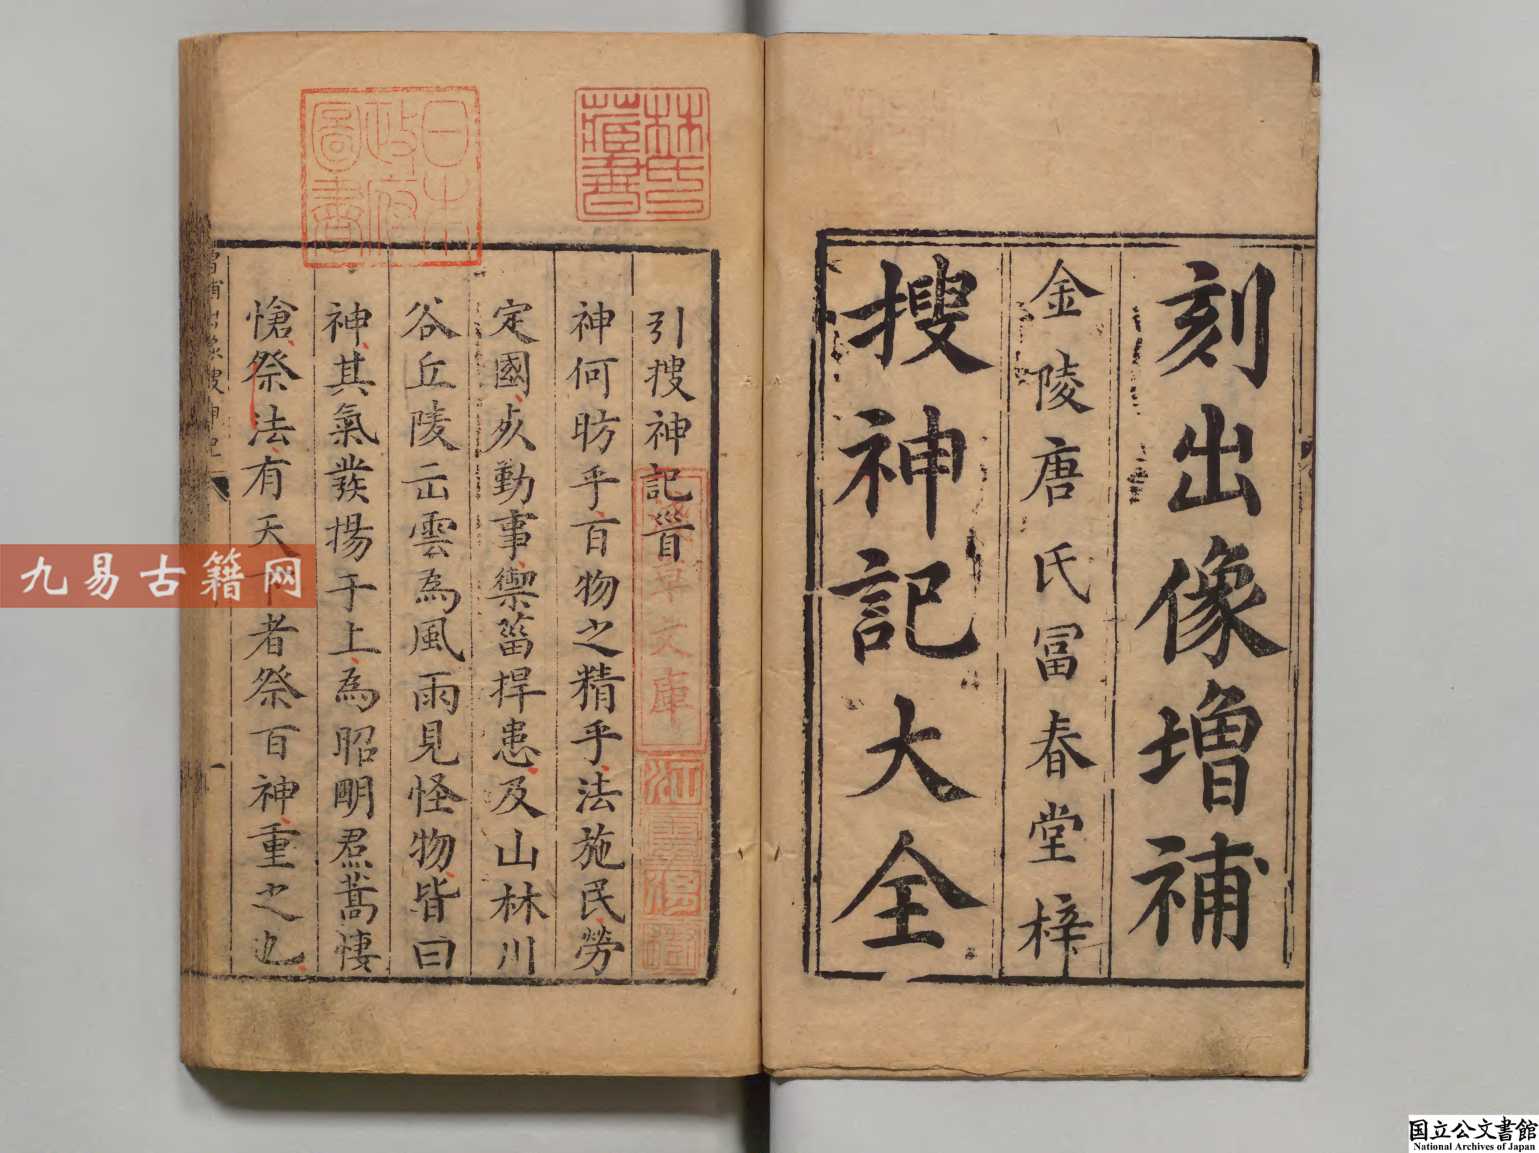 刻出像增補
金陵唐氏冨春堂梓
搜神記大全
引搜神記首
神何昉乎百物之精乎法施民勞
定國死勤事禦菑捍患及山林川
谷丘陵云雲為風雨見怪物皆曰
神其氣發揚于上為昭明焄蒿悽
愴祭法有天下者祭百神重之也
日本政府圖書
林氏藏書
淺草文庫
江雲渭樹
九易古籍网
国立公文書館
National Archives of Japan